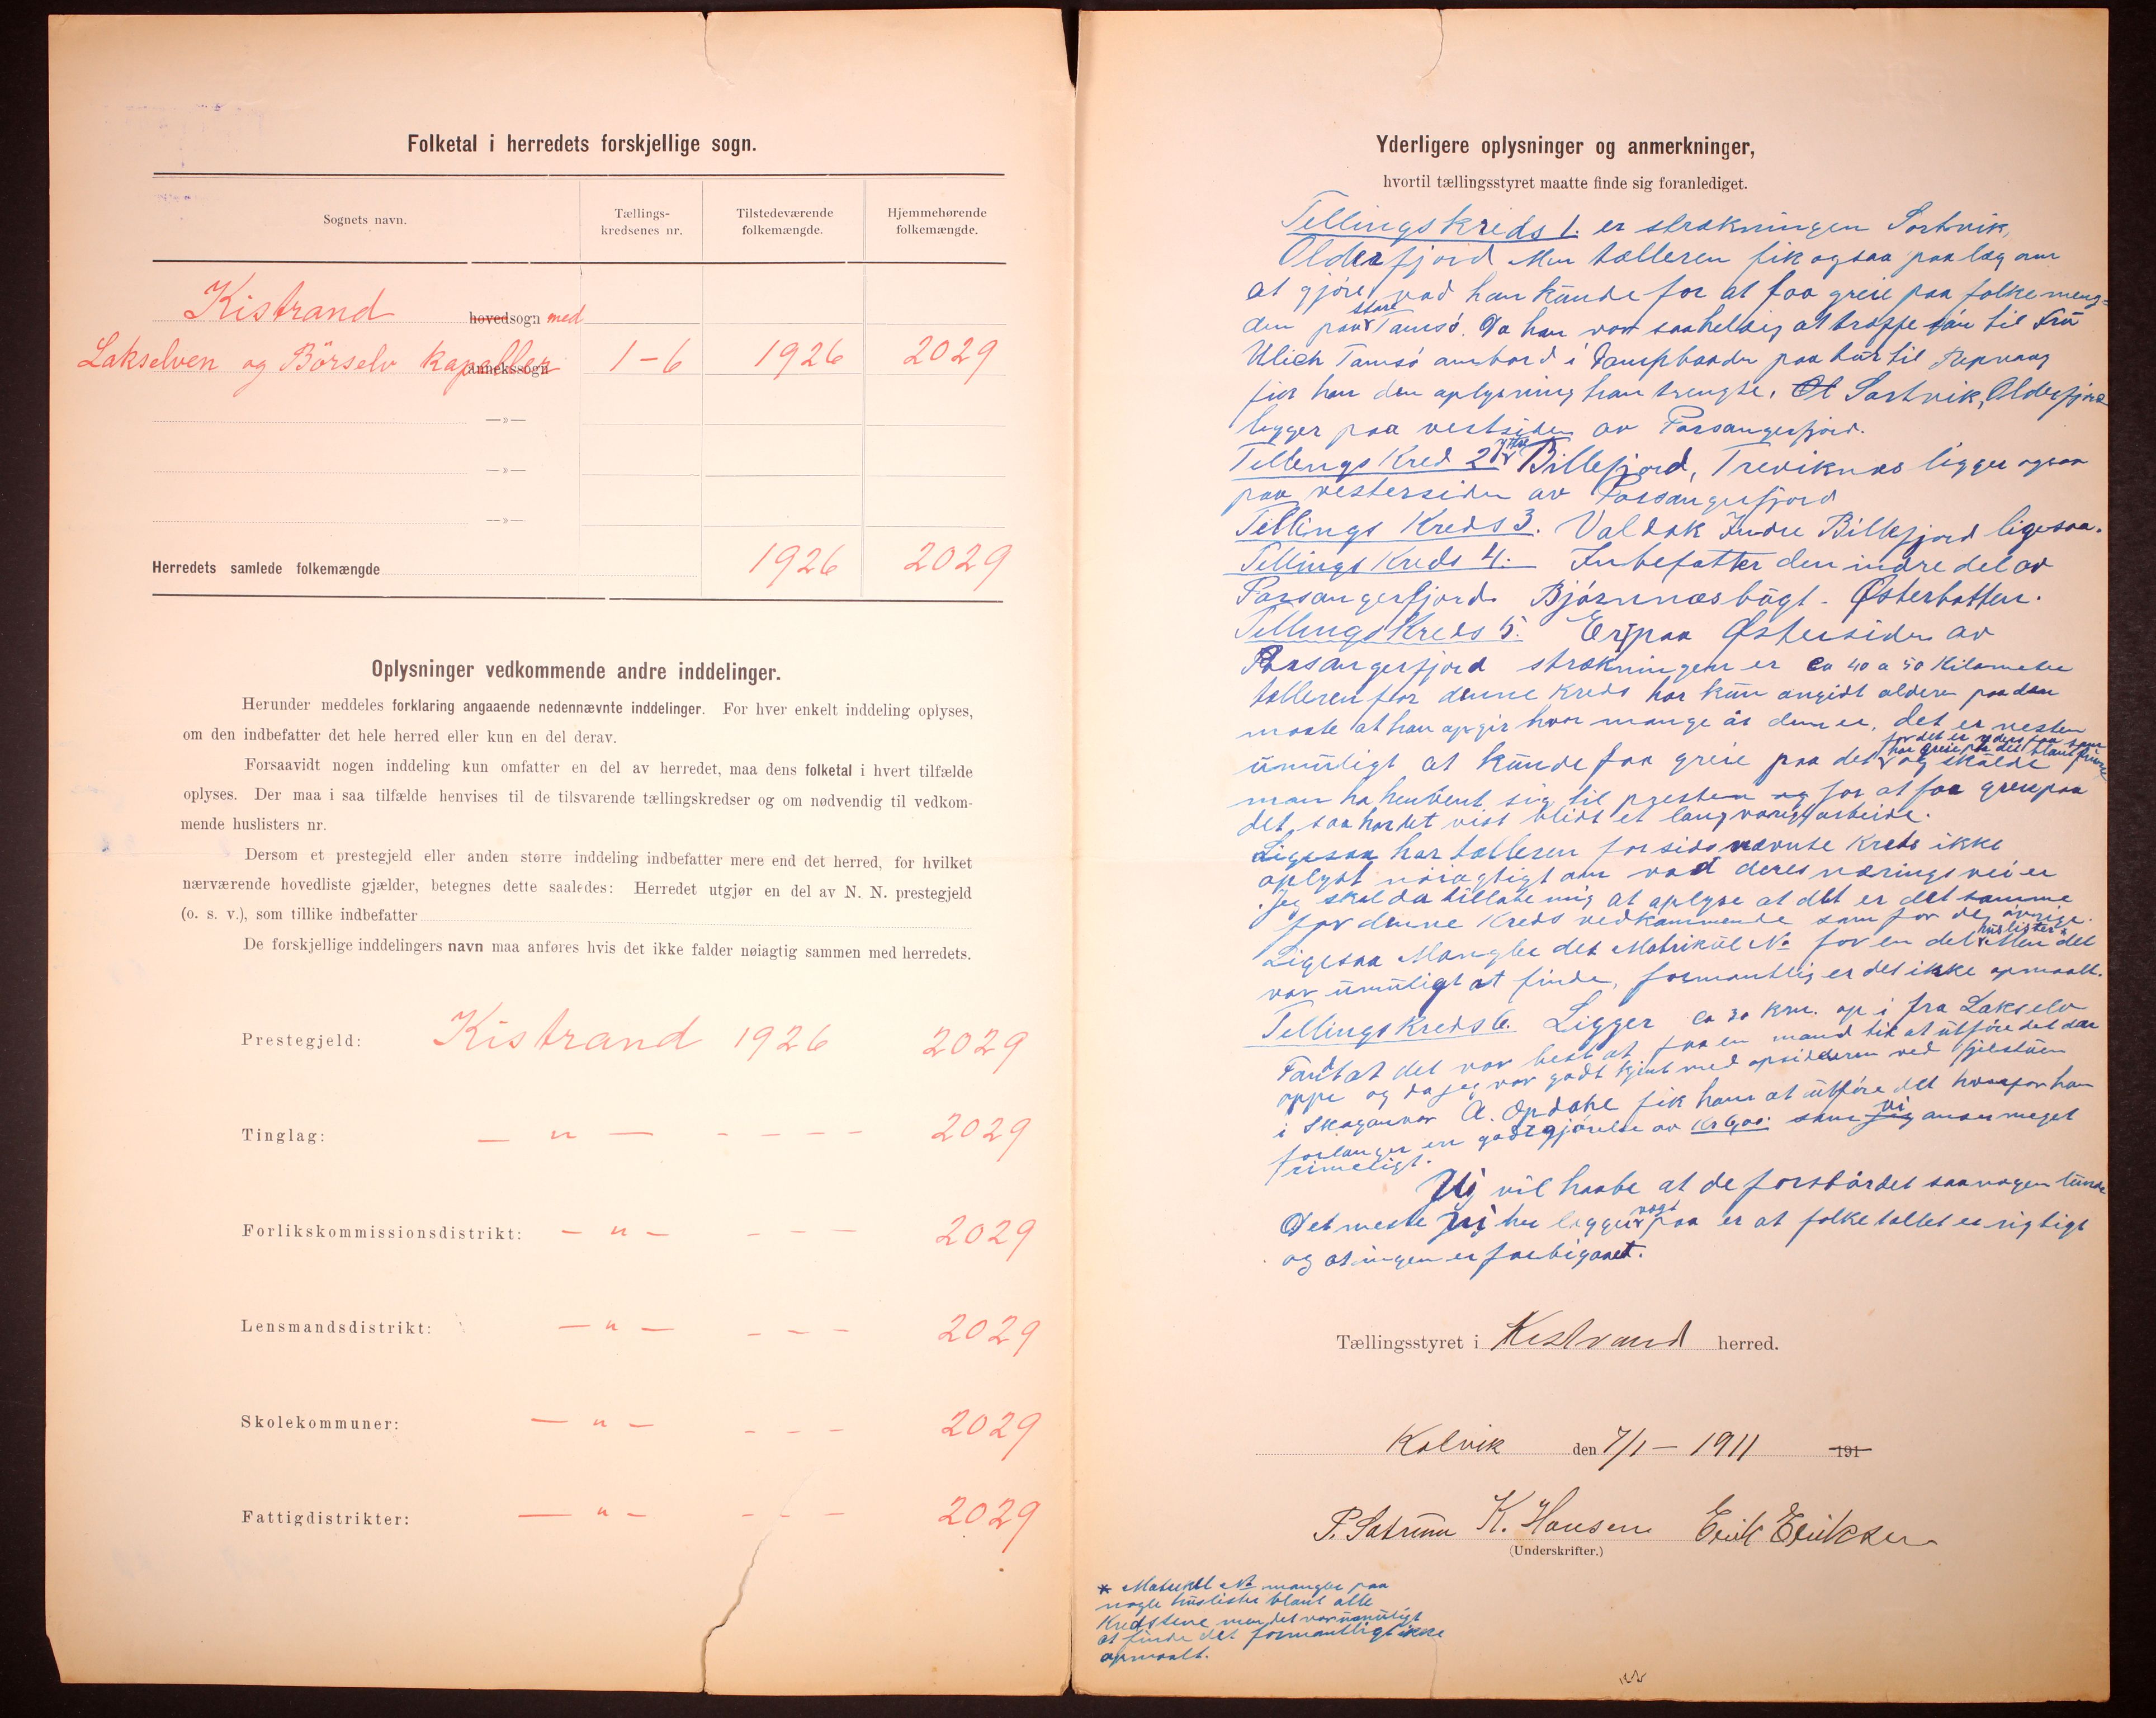 Folketal i herredets forskjellige sogn.
Sognets navn.
Tællings-
kredsenes nr.
Tilstedeværende
folkemængde.
Hjemmehørende
folkemængde.
Kistrand hovedsogn med
Lakselven og Börselv kapeller annekssogn 1-6 1926 2029
—»—
—»—
—»—
Herredets samlede folkemængde 1926 2029
Oplysninger vedkommende andre inddelinger.
Herunder meddeles forklaring angaaende nedennævnte inddelinger. For hver enkelt inddeling oplyses,
om den indbefatter det hele herred eller kun en del derav.
Forsaavidt nogen inddeling kun omfatter en del av herredet, maa dens folketal i hvert tilfælde
oplyses. Der maa i saa tilfælde henvises til de tilsvarende tællingskredser og om nødvendig til vedkom-
mende huslisters nr.
Dersom et prestegjeld eller anden større inddeling indbefatter mere end det herred, for hvilket
nærværende hovedliste gjælder, betegnes dette saaledes: Herredet utgjør en del av N. N. prestegjeld
(o. s. v.), som tillike indbefatter
De forskjellige inddelingers navn maa anføres hvis det ikke falder nøiagtig sammen med herredets.
Prestegjeld: Kistrand 1926 2029
Tinglag: — „ — - - - - 2029
Forlikskommissionsdistrikt: — „ — - - - 2029
Lensmandsdistrikt: — „ — - - - 2029
Skolekommuner: — „ — - - - 2029
Fattigdistrikter: — „ — - - - 2029
Yderligere oplysninger og anmerkninger,
hvortil tællingsstyret maatte finde sig foranlediget.
Tellingskreds 1. er strækningen Sortvik,
Olderfjord Men tælleren fik ogsaa paalæg om
at gjøre vad han kunde for at faa greie paa folkemeng-
den paa store Tamsö. Da han var saa heldig at træffe Fru
Ulich Tamsö ombord i Dampbaaden paa tur til Repvaag
fik han den oplysning han trengte. Sortvik, Olderfjord
ligger paa vestsiden av Porsangerfjord.
Tellings Kred 2 Ytre Billefjord, Treviknes ligger ogsaa
paa vestersiden av Porsangerfjord
Tellings Kreds 3. Valdak Indre Billefjord ligesaa.
Tellings Kreds 4. Inbefatter den indre del av
Porsangerfjord. Bjørnnæsbugt - Østerbotten.
Tellings Kreds 5. Er paa Østersiden av
Porsangerfjord strækningen er ca 40 a 50 Kilometer
tælleren for denne Kreds har kun angidt alderen paa den
maate at han opgir hvor mange år den er, det er nesten
umuligt at kunde faa greie paa det og skulde
for det er ingen som har greie paa det
man ha henvent sig til presten for at faa greie paa
det, saa har det vist blidt et langvarigt arbeide.
Ligesaa har tælleren for sidsnævnte Kreds ikke
oplyst nöiagtigt om vad deres næringsvei er
Jeg skal da tillate mig at oplyse at det er det samme
for denne Kreds vedkommende som for de övrige.
Ligesaa Mangler det Matrikul No for en del huslister* Men det
var umuligt at finde, formentlig er det ikke opmaalt.
Tellingskreds 6. Ligger ca 30 km. op i fra Lakselv
Fandt at det var best at faa en mand til at utföre det der
oppe og da jeg var godt kjent med opsidderen ved fjelstuen
i Skoganvar A. Opdahl fik ham at utföre det hvorfor han
forlanger en godtgjörelse av Kr 6,00 som vi anser meget
rimeligt.
Vi vil haabe at de forstår det
Det meste vi her ligger vegt paa er at folketallet er rigtigt
og at ingen er forbigaaet.
Tællingsstyret i Kistrand herred.
Kolvik den 7/1 - 1911 191
P. Satrum K. Hansen Erik Eriksen
(Underskrifter.)
* Matrikul No mangler paa
nogle huslister blant alle
Kredsene men det var umuligt
at finde det formentligt ikke
opmaalt.